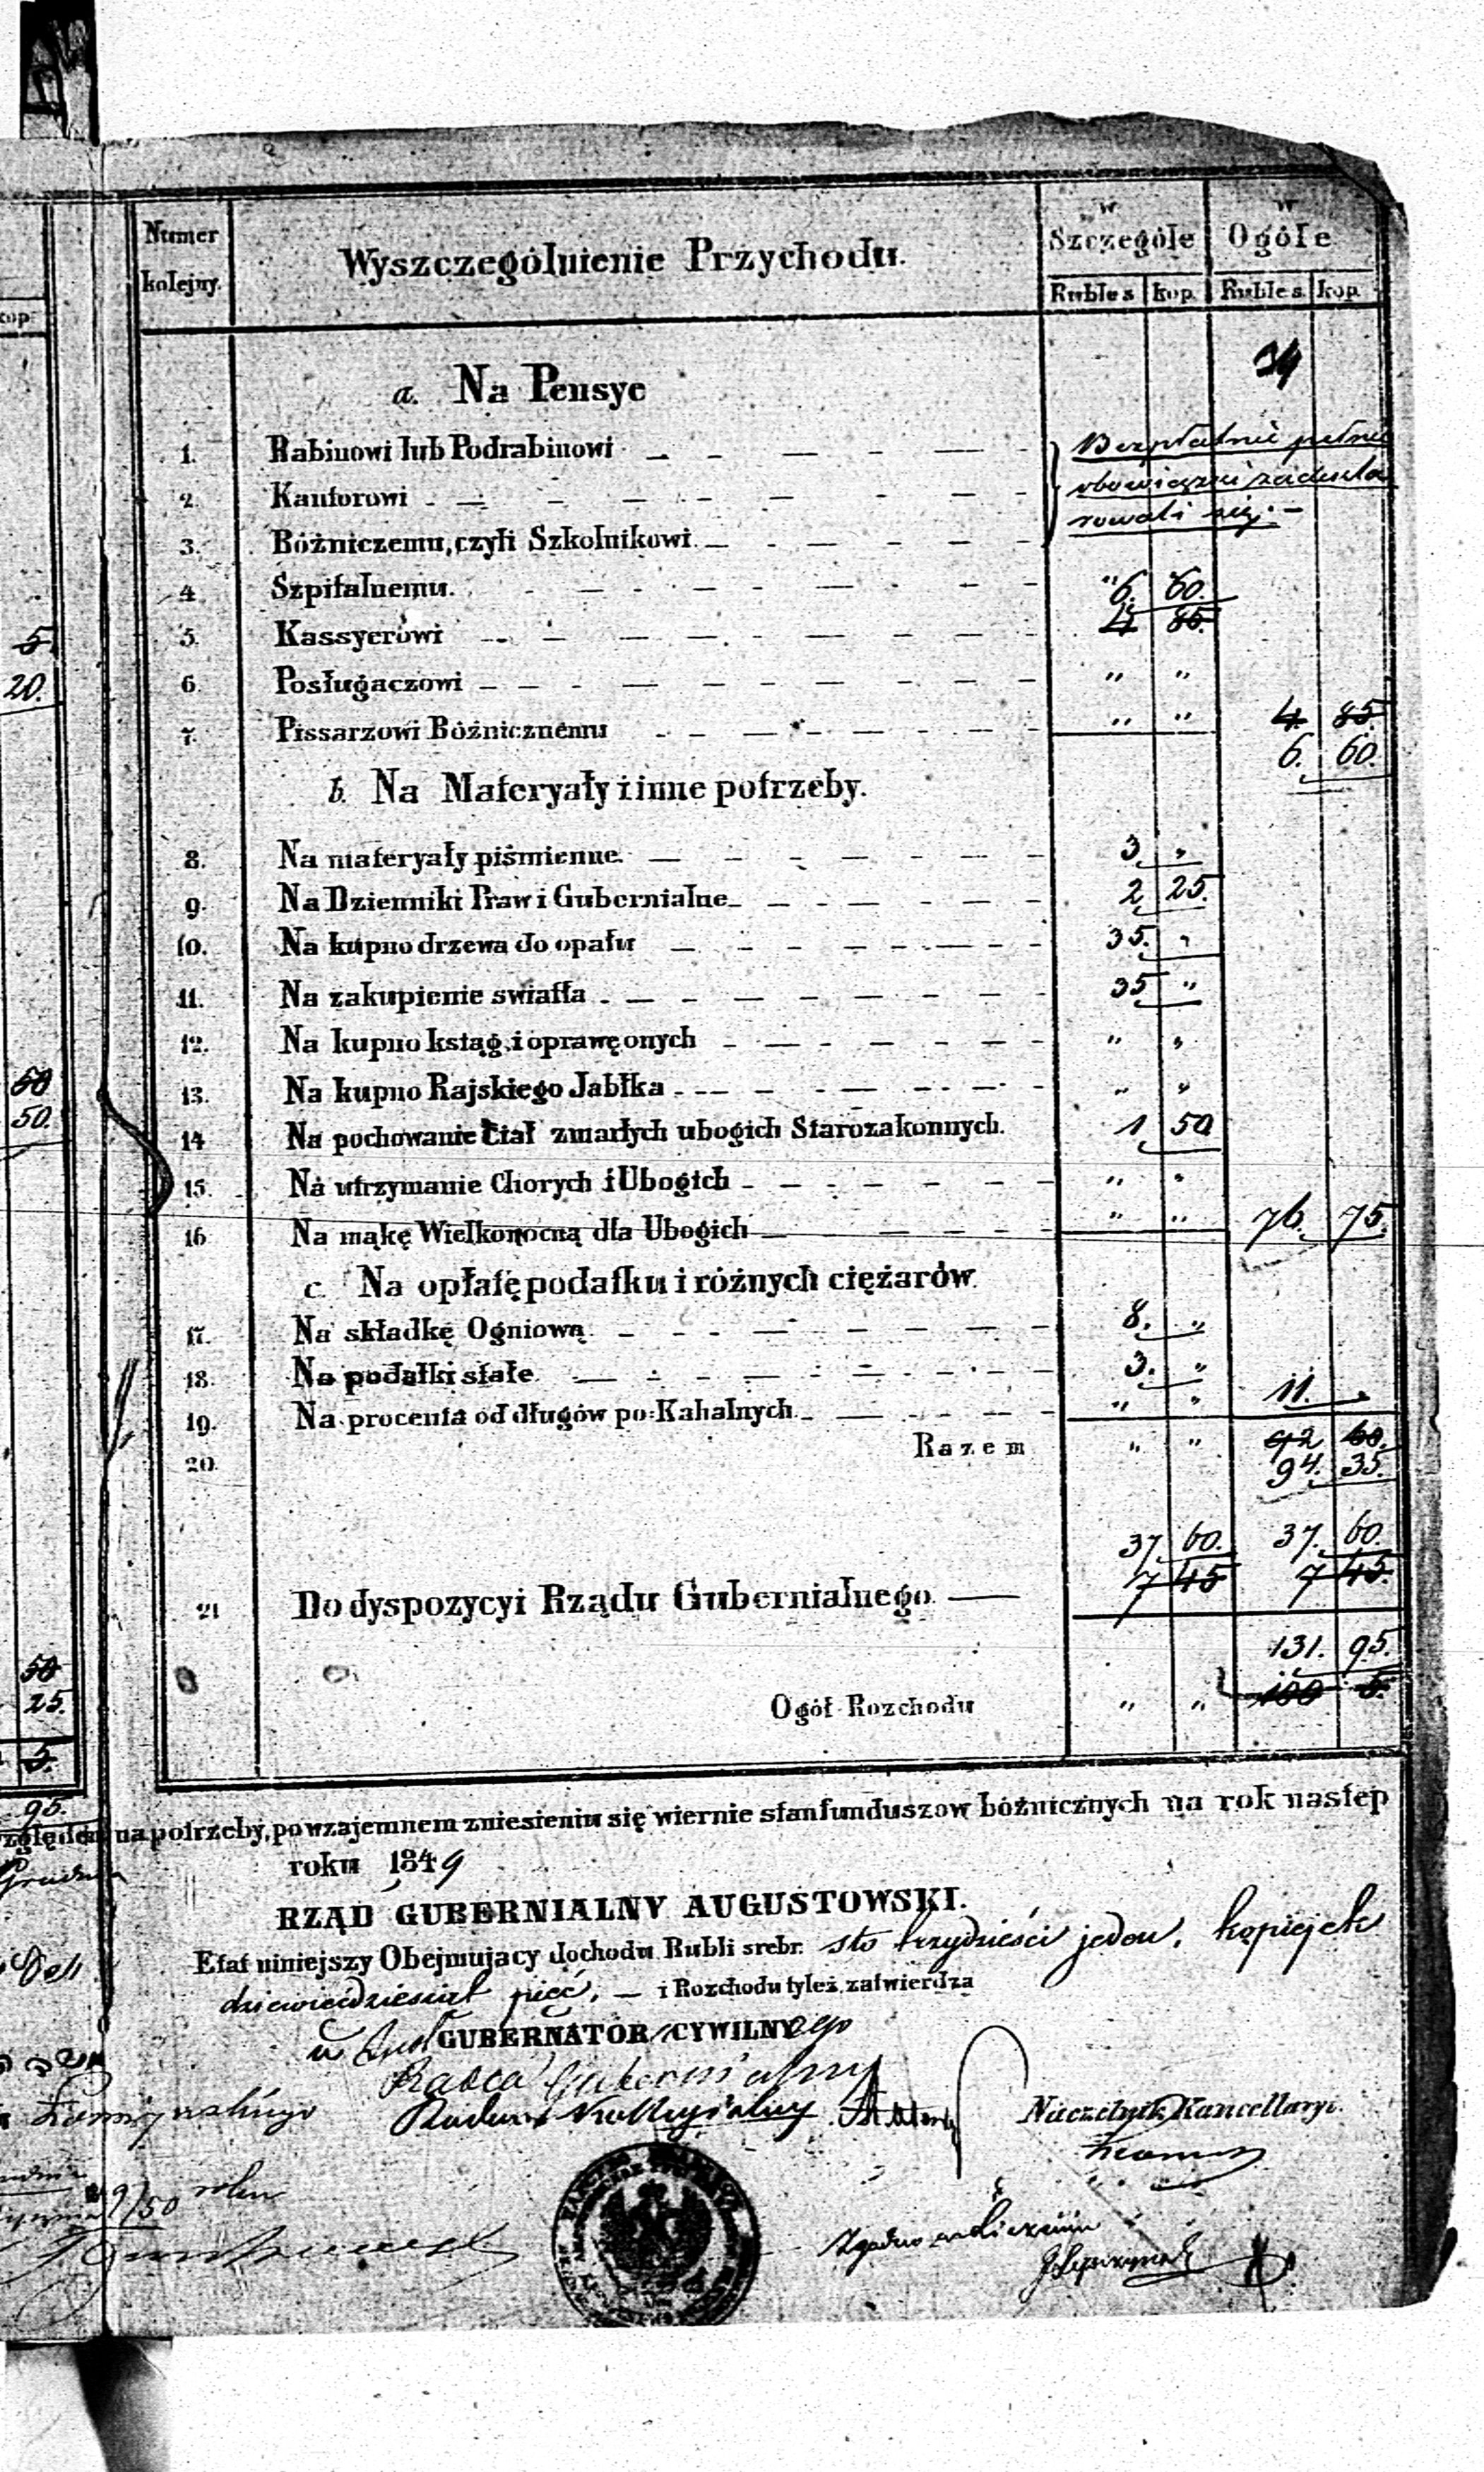 Numer kolejny.
Wyszczególnienie Przychodu.
w Szczególe
w Ogóle
Rubles kop. Rubles kop
34
a. Na Pensye
1. Rabinowi lub Podrabinowi Bezpłatnie pełnić
2. Kantorowi obowiązki zadekla
3. Bóżniczemu, czyli Szkolnikowi rowali się.
4 Szpitalnemu. " 6. 60.
5. Kassyerowi 4 85.
6. Posługaczowi " "
7. Pissarzowi Bóżnicznemu " " 4 85.
6. 60.
b. Na Materyały i inne potrzeby.
8. Na materyały piśmienne 3 "
9. Na Dzienniki Praw i Gubernialne 2 25.
10. Na kupno drzewa do opału 35. "
11. Na zakupienie swiatła 35 "
12. Na kupno ksiąg, i oprawę onych " "
13. Na kupno Rajskiego Jabłka " "
14 Na pochowanie Ciał zmarłych ubogich Starozakonnych. 1 50
15. Na utrzymanie Chorych i Ubogich " "
16 Na mąkę Wielkonocną dla Ubogich " " 76. 75.
c. Na opłatę podatku i różnych ciężarów
17. Na składkę Ogniową 8. "
18. Na podatki stałe 3. "
19. Na procenta od długów po-Kahalnych " " 11. "
20. Razem " " 92 60.
94. 35.
37 60. 37. 60.
7 45 7 45.
21 Do dyspozycyi Rządu Gubernialnego.
131. 95.
Ogół Rozchodu " " 100 5.
5
20.
50
50.
50
25.
5.
95.
względem na potrzeby, po wzajemnem zniesieniu się wiernie stan funduszow bóżnicznych na rok nastep
roku 1849
RZĄD GUBERNIALNY AUGUSTOWSKI.
Etat niniejszy Obejmujacy dochodu Rubli srebr. sto trzydzieści jeden, kopiejek
dziewiećdziesiąt pięć, — i Rozchodu tyleż zatwierdza
GUBERNATOR CYWILNY
Radca Gubernialny
Naczelnik Kancellaryi.
9/50 roku